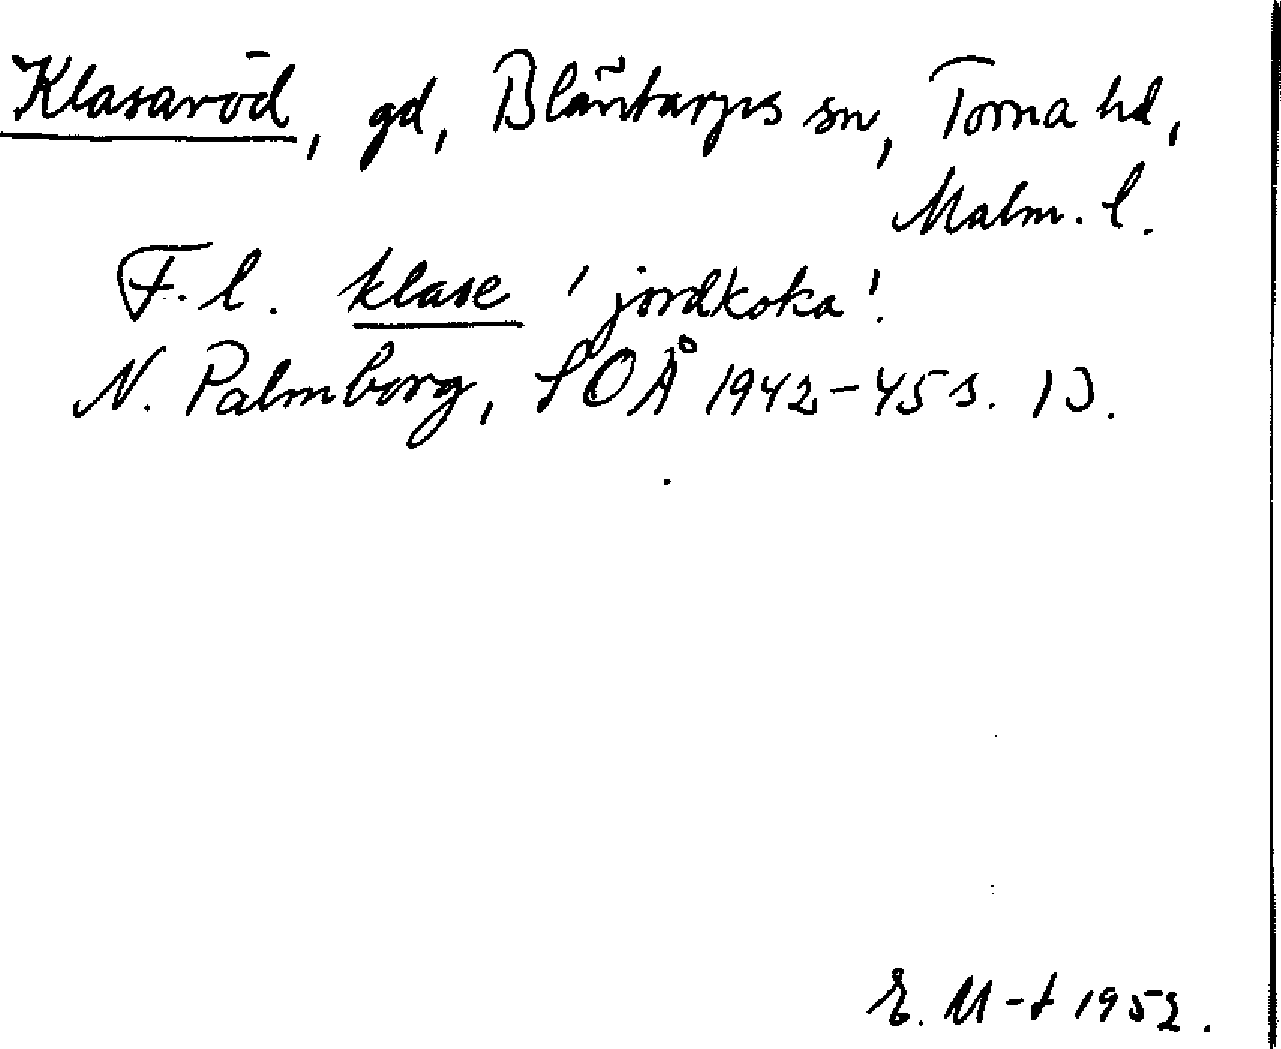 Klasaröd, gd, Bläntarps sn, Torna hd,
Malm. l.
F. l. klase 'jordkoka'.
N. Palmborg, SOÅ 1942-45 s. 13.
E. M-t 1952.